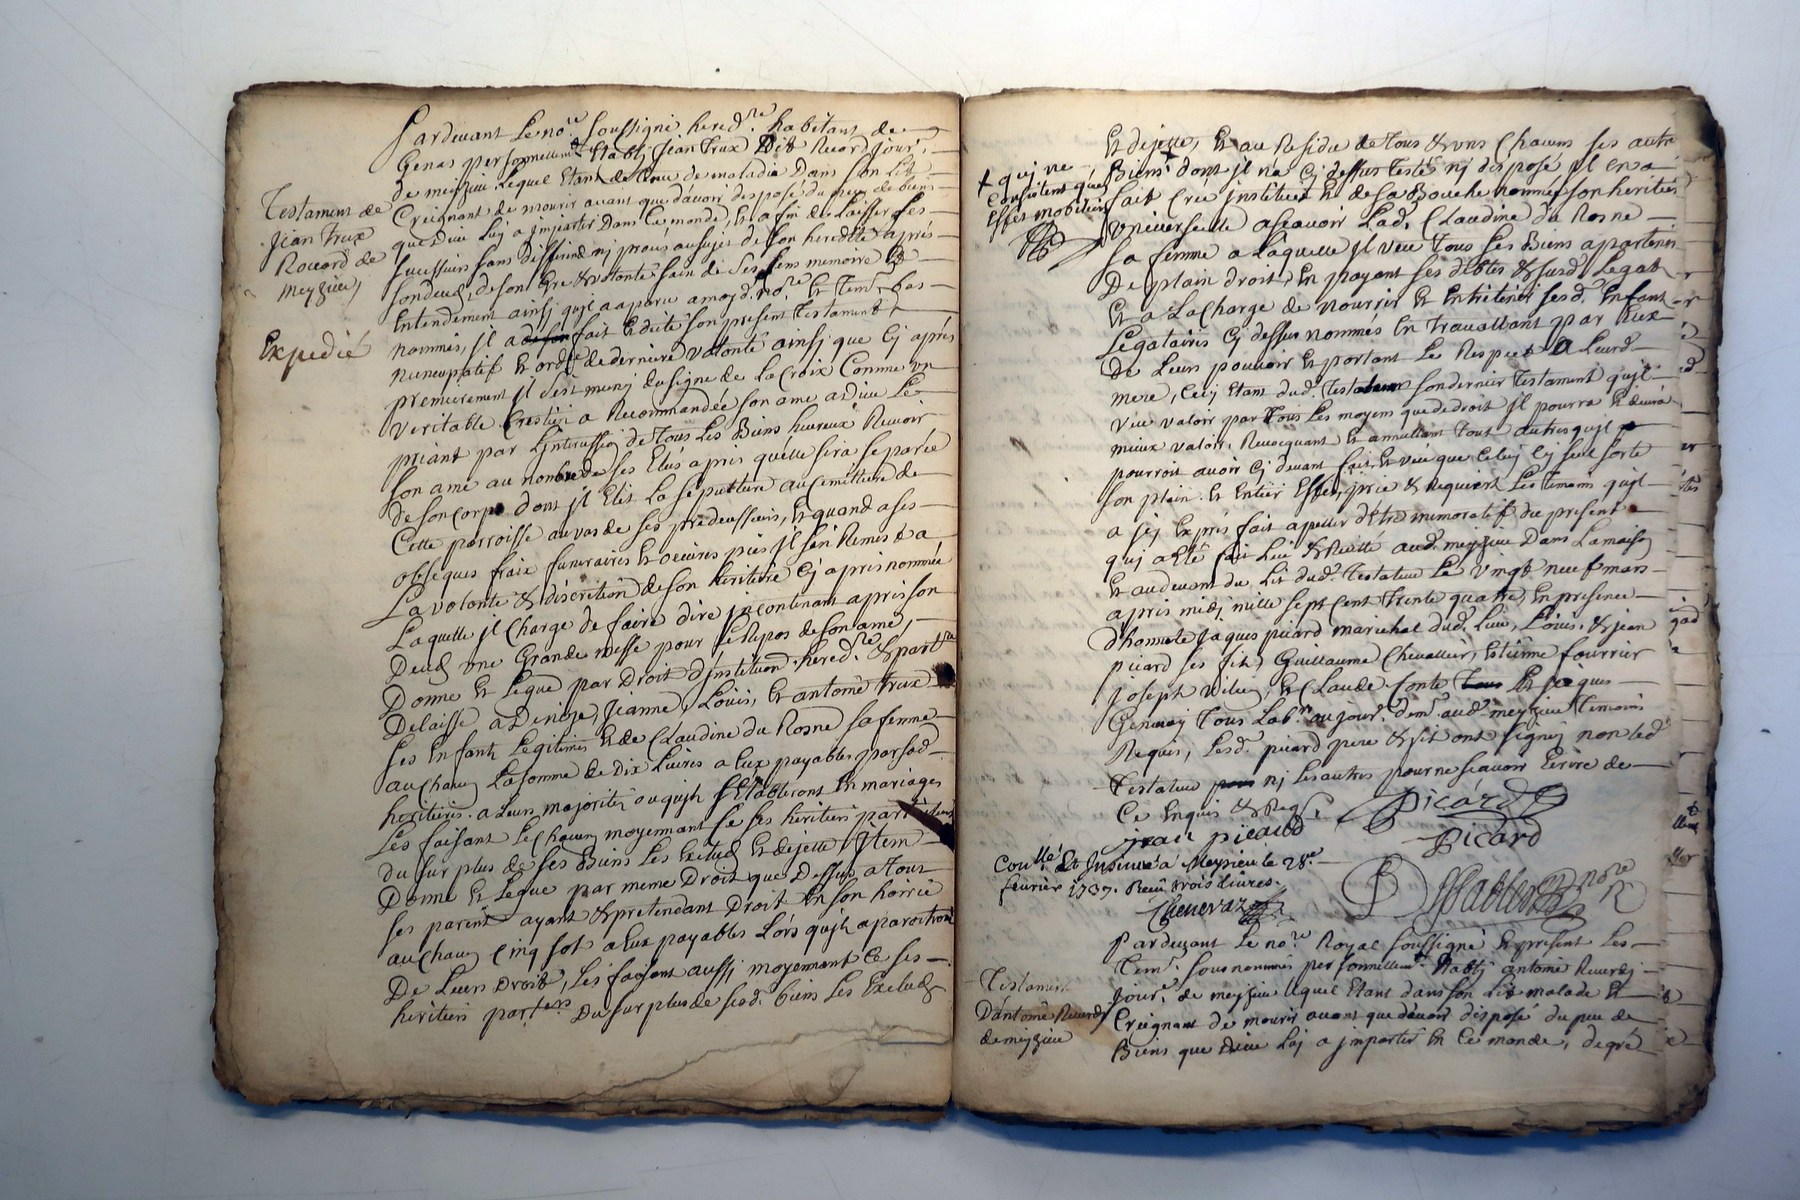 Pardevant Le no.re soussigné hered.re habitant de
Genas personnellem.t Etably Jean Trux Dit Rocard jour.r
de meyzieu Lequel Etant de Cru de maladie Dans son Lit
Testament de
Jean Trux
Rocard de
Meyzieu
Creignant de mourir avant que d'avoir disposé du peu de biens
que Dieu Luy a jmparti Dans Ce monde, Et a fin de Laisser ses
successeurs sans differend nj procés au sujet de son heredité aprés
son deceds, de son Gré & volonté sain de ses sens memoire &
Entendement ainsj qu'jl a aparu a moyd. no.re Et Tem. bas
Expedié
nommés, jl a fait Et dicté son present Testament
nuncupatif Et ord.e de derniere volonté ainsj que Cj aprés
premierement jl s'est munj du signe de La Croix Comme un
veritable Crestien a Recommandée son ame a Dieu Le
priant par L'jntercession de Tous Les Biens heureux Recevoir
son ame au nombre de ses Elus aprés qu'elle sera separée
de son corps dont jl Elit La sepulture au Cemittiere de
Cette parroisse au vas de ses predecesseurs, Et quand a ses
obseques fraix funeraires Et oeuvres pies jl s'en Remest a
La volonté & discretion de son heritiere Cj aprés nommée
Laquelle jl Charge de faire dire jncontinant aprés son
Deceds une Grande messe pour Le Repos de son ame,
Donne Et Legue par Droit d'jnstitution hered.re & part.re
Delaisse a Denise, Jeanne, Louis, Et antoine Trux
ses Enfants Legitimes Et de Claudine du Rosne sa femme
au Chacun La somme de Dix Livres a Eux payables par sad.
heritiere a Leurs majorités ou qu'jls s'Etabliront En mariages
Les faisant Le Chacun moyennant Ce ses heritiers particuliers
du surplus de ses Biens Les Exclud Et dejette, Jtem
Donne Et Legue par meme Droit que Dessus a tous
ses parents ayant & pretendant Droit En son hoirie
au Chacun Cinq sols a Eux payables Lors qu'jls aparoitront
De Leurs Droits, Les faisant aussj moyennant Ce ses
heritiers part.ers Du surplus de sesd. biens Les Exclud
Et dejette, Et au Residu de Tous & uns Chacuns ses autre
+ quj ne
Consistent qu'en
Effets mobiliers
Biens + dont jl n'a Cj dessus Testé nj disposé jl En a
fait Créé jnstitué Et de sa Bouche nommée son heritiere
universelle ascavoir Lad. Claudine du Rosne
sa femme a Laquelle jl veu Tous ses Biens apartenir
De plain droit, En payant ses debtes & susd. Legats
Et a La charge de nourrir Et Entretenir sesd. Enfants
Legataires Cj dessus nommés En Travaillant par Eux
De Leurs pouvoir Et portant Le Respect a Leurd.
mere, Cecy Etant dud. Testateur son dernier Testament qu'jl
veu valoir par Tous Les moyens que de droit jl pourra Et devra
mieux valoir, Revocquant Et annullant Tout autres qu'jl
pourroit avoir Cj devant fait, Et veu que Celuy Cj seul sorte
son plain & Entier Effet, prie & Requiert Les Temoins qu'jl
a jcy Exprés fait apeller d'Etre memoratifs du present
quj a Eté fait Leu & Recitté aud. meyzieu Dans La maison
Et au devant du Lit dud. Testateur Le vingt neuf mars
aprés midj mille sept cent Trente quatre, En presence
d'honnete Jaques picard marechal dud. Lieu, Louis, & jean
picard ses fils, Guillaume Chevallier, Estienne fourrier
joseph Et Claude Conte Et jaques
Tous Lab.rs ou jour.r dem.t aud. meyzieu Temoins
Requis, Lesd. picard pere & fils ont signés non Led.
Testateur nj Les autres pour ne scavoir Ecrire de
Ce Enquis & Req.s
Picard
jean picard
Picard
Coll.é Et Jnsinué a Meysieu le 28.e
fevrier 1737. Receu trois Livres.
Chenevaz
no.re R
Pardevant Le no.re Royal soussigné Et present Les
Tem.s sousnommés personnellem.t Etablj antoine Reverdj
Testament
D'antoine Reverdy
de meyzieu
jour.r de meyzieu Lequel Etant dans son Lit malade Et
Creignant de mourir avant que d'avoir disposé du peu de
Biens que Dieu Luj a jmparti En Ce monde, de gré